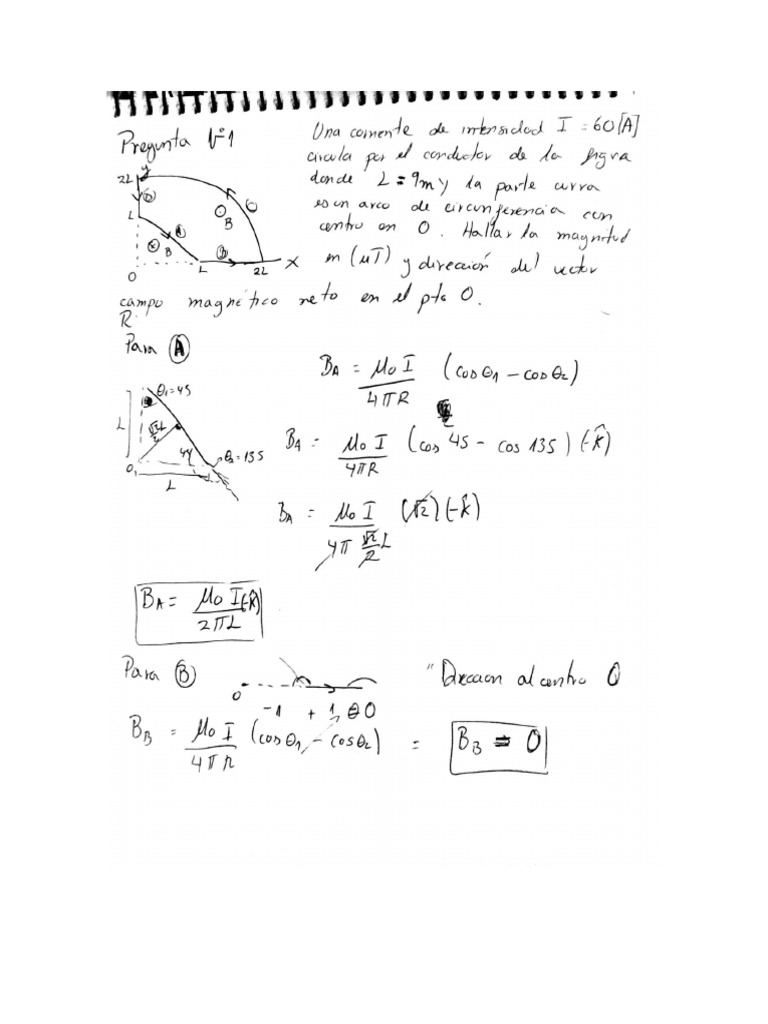 Pregunta N°1
Una corriente de intensidad I = 60 [A]
circula por el conductor de la figura
donde L = 9m y la parte curva
es un arco de circunferencia con
centro en O. Hallar la magnitud
en (μT) y dirección del vector
campo magnético neto en el pto O.
y
2L
D
C
L
A
B
B
B
O
L
2L
X
R:
Para A
B_A = μ₀ I / 4πR (cos θ1 − cos θ2)
θ1 = 45
L
√2/2 L
O
L
θ2 = 135
B_A = μ₀ I / 4πR (cos 45 − cos 135) (-k̂)
B_A = μ₀ I / 4π √2/2 L (√2) (-k̂)
B_A = μ₀ I (-k̂) / 2πL
Para B
O
"Dirección al centro O
-1 + 1
B_B = μ₀ I / 4πR (cos θ1 − cos θ2) = B_B = 0